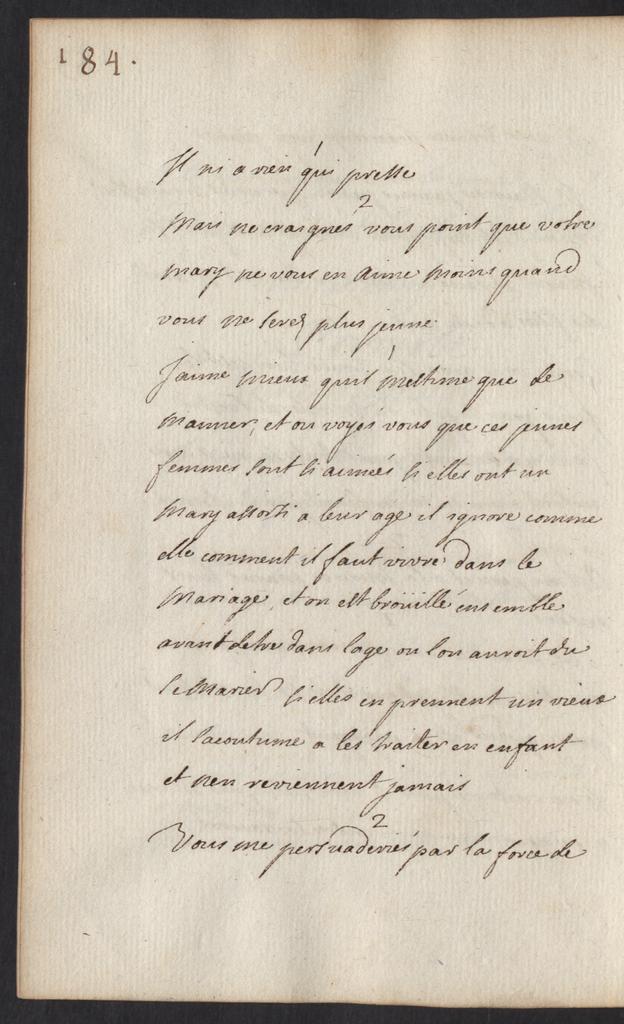 184.
1
Il ni a rien qui presse
2
Mais ne craignés vous point que votre
mary ne vous en aime moins quand
vous ne serez plus jeune
1
J'aime mieux quil mestime que de
maimer, et ou voyés vous que ces jeunes
femmes sont si aimées si elles ont un
mary assorti a leur age il ignore comme
elle comment il faut vivre dans le
mariage, et on est broüillé ensemble
avant detre dans lage ou lon auroit du
se marier si elles en prennent un vieux
il sacoutume a les traiter en enfant
et nen reviennent jamais
2
Vous me persuaderiés par la force de